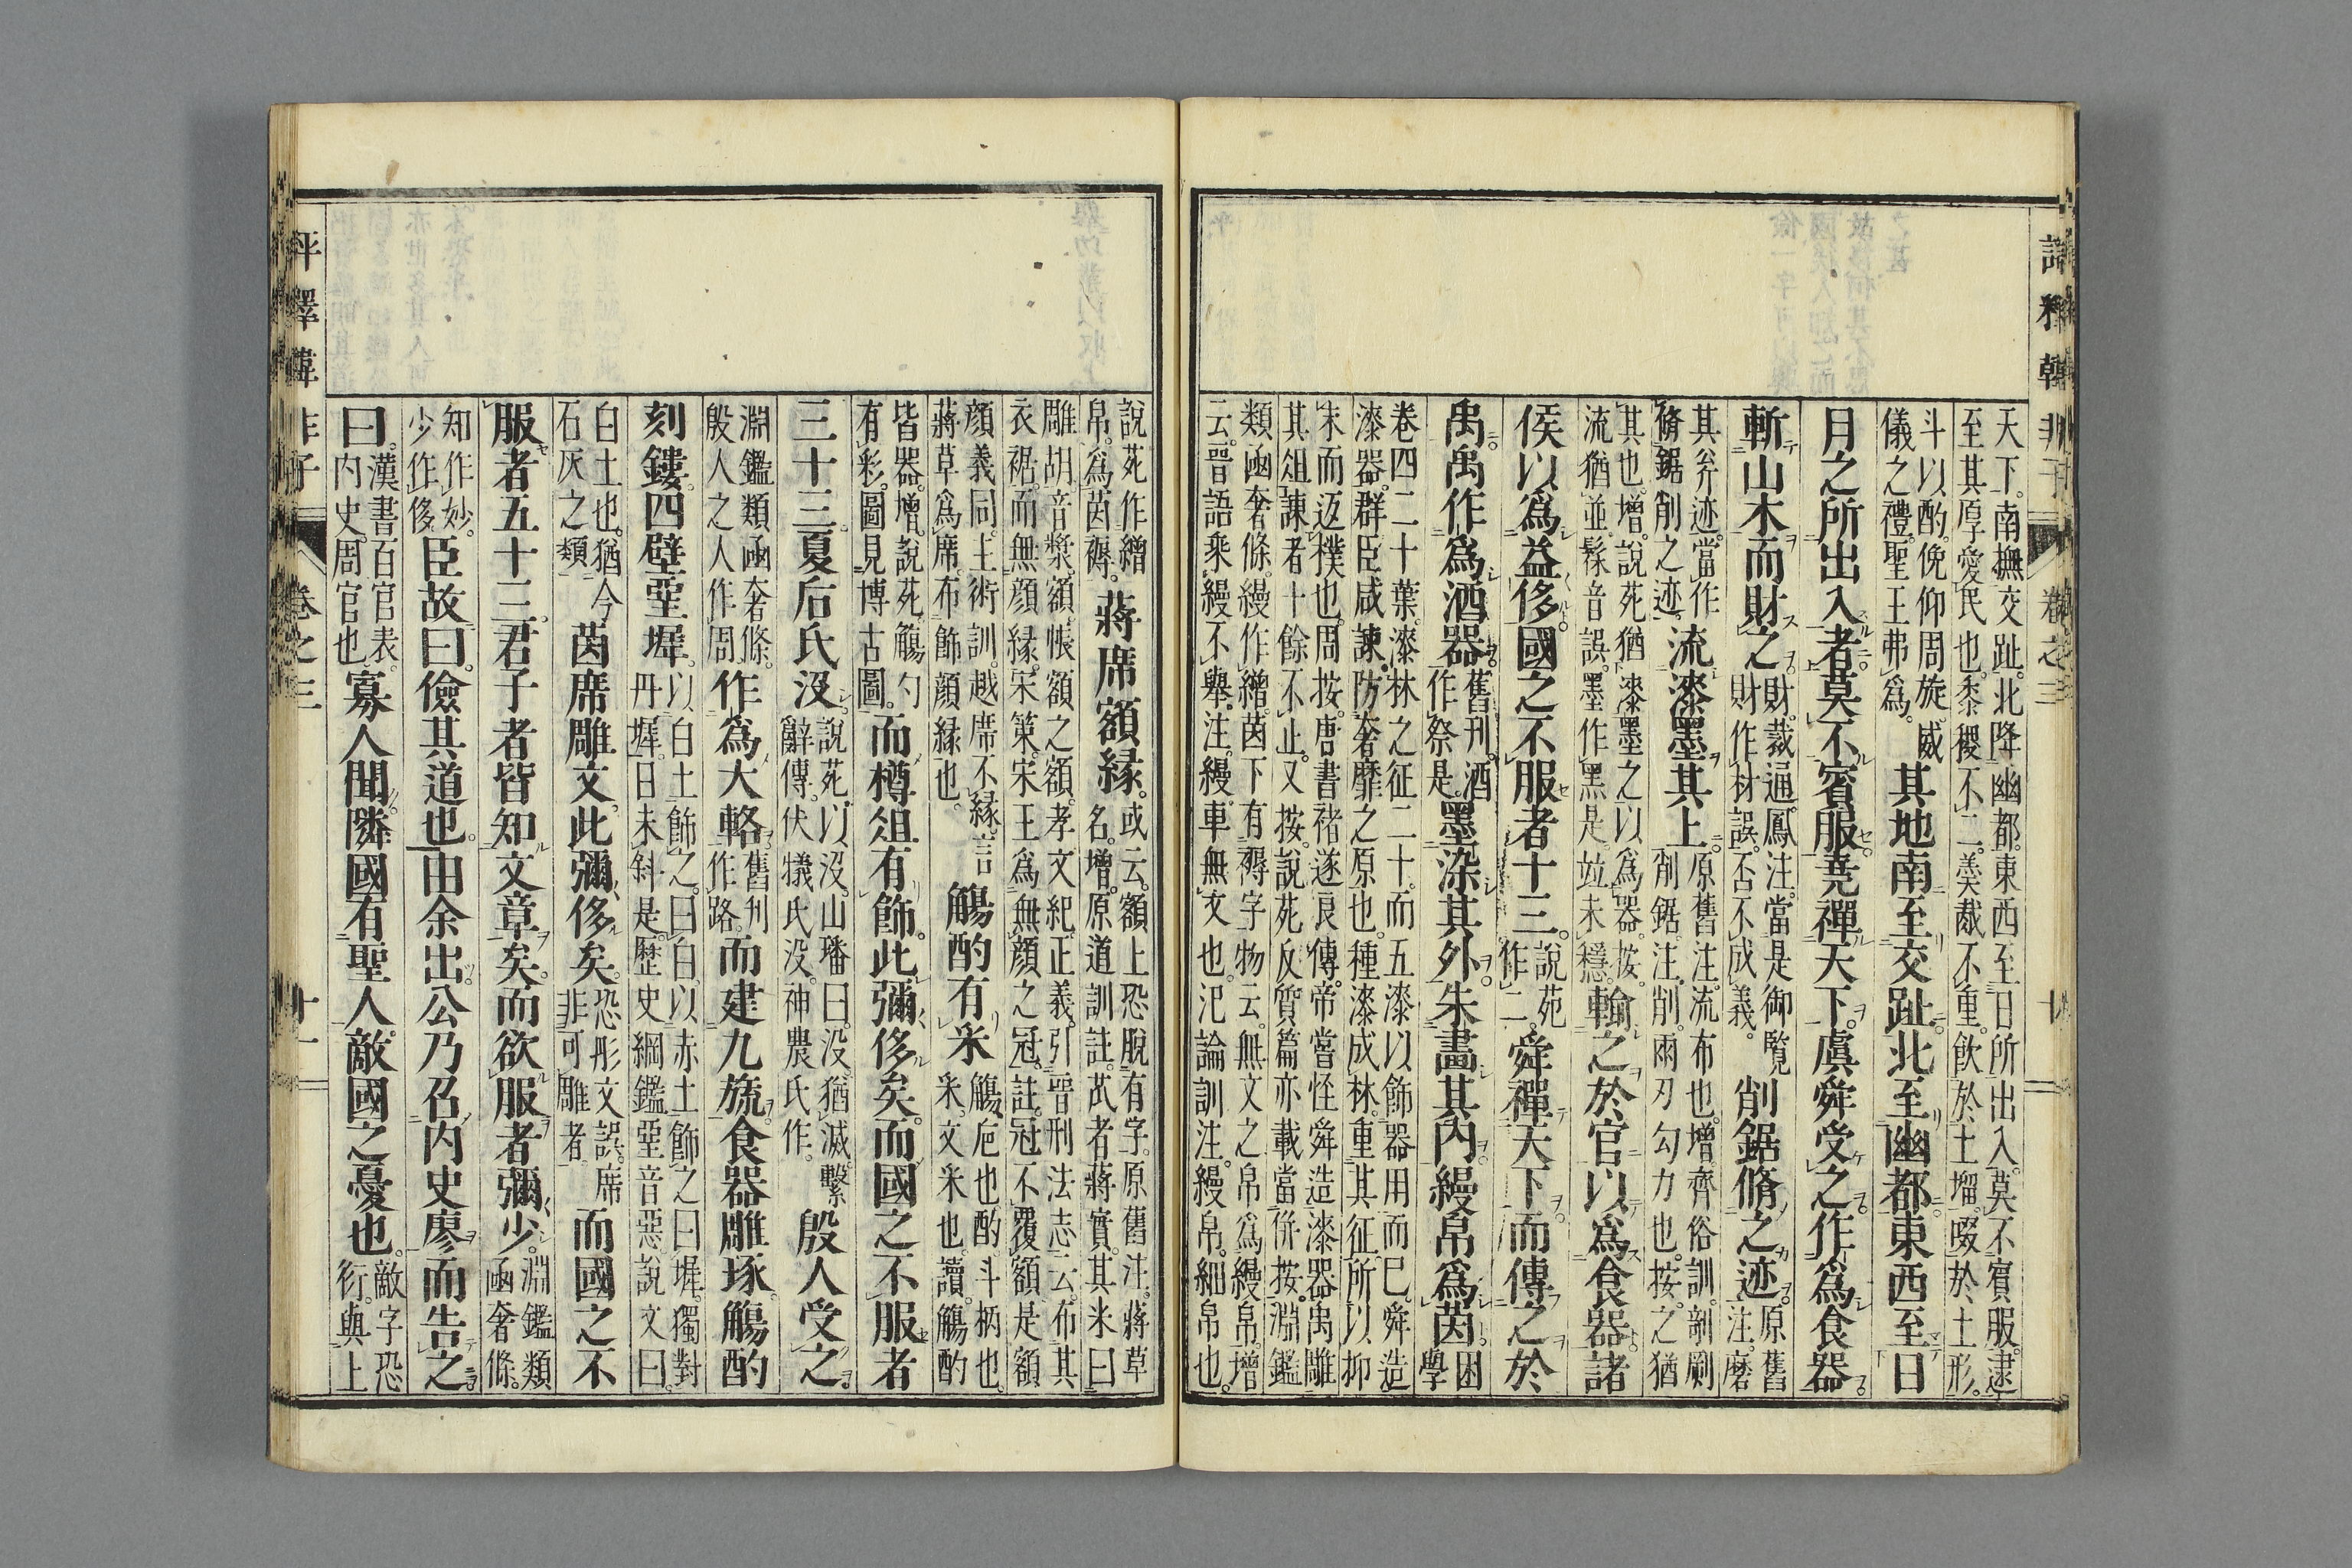 天下。南撫交趾。北降幽都。東西至日所出入。莫不賓服。逮
至其厚愛民也。黍稷不二。羹胾不重。飮於土塯。啜於土形。
斗以酌。俛仰周旋。威
儀之禮。聖王弗爲。
其地南至交趾北至幽都東西至日
月之所出入者莫不賓服堯禪天下。虞舜受之作爲食器。
斬山木而財之。
財。裁通。鳳注。當是御覧
財作材誤。否不成義。
削鋸脩之迹。
原舊
注。磨
其斧迹。當作
脩鋸削之迹。
流漆墨其上。
原舊注。流布也。增。齊俗訓。剞劂
削鋸。注。削。兩刃勾力也。按。之猶
其也。增。說苑猶漆墨之以爲器。按。
流猶並。髹音誤。墨作黑是。竝未穩。
輸之於官以爲食器。諸
侯以爲益侈國之不服者十三。
說苑
作二。
舜禪天下而傳之於
禹。禹作爲酒器。
舊刊。酒
作祭是。
墨染其外。朱畫其內。縵帛爲茵。
困
學
卷四二十葉。漆林之征二十。而五漆以飾器用而已。舜造
漆器。群臣咸諫。防奢靡之原也。種漆成林。重其征。所以抑
末而返樸也。周按。唐書褚遂良傳。帝嘗怪舜造漆器禹雕
其俎諫者十餘不止。又按。說苑反質篇亦載當併按。淵鑑
類函奢條。縵作繒。茵下有褥字物云。無文之帛爲縵帛。增
云。晉語乘縵不舉。注。縵車無文也。氾論訓注。縵帛。細帛也。
說苑作繒
帛。爲茵褥。
蔣席額緣。
或云。額上恐脫有字。原舊注。蔣草
名。增。原道訓註。苽者蔣實。其米曰
雕胡。音漿。額。帳額之額。孝文紀。正義。引晉刑法志云。布其
衣裾而無顔緣。宋策。宋王爲無顔之冠。註。冠不覆額是額
顔義同。主術訓。越席不緣。言
蔣草爲席。布飾顔緣也。
觴酌有采
觴。卮也酌。斗柄也。
采。文采也。讀。觴酌
皆器。增。說苑。觴勺
有彩。圖見博古圖。
而樽俎有飾。此彌侈矣。而國之不服者
三十三。夏后氏沒
說苑。以沒。山璠曰。沒猶滅。繫
辭傳。伏犧氏沒。神農氏作。
殷人受之
淵鑑類函奢條。
殷人之人作周。
作爲大輅。
舊刊
作路。
而建九旒。食器雕琢。觴酌
刻鏤。四壁堊墀。
以白土飾之。曰白。以赤土飾之曰墀。獨對
丹墀。日未斜是。歷史綱鑑。堊音惡。說文曰。
白土也。猶今
石灰之類
茵席雕文。此彌侈矣。
恐彤文誤。席
非可雕者
而國之不
服者五十三。君子者皆知文章矣。而欲服者彌少。
淵鑑類
函奢條。
知作妙。
少作侈。
臣故曰。儉其道也。由余出。公乃召內史廖而告之
曰。
漢書百官表。
內史周官也。
寡人聞隣國有聖人。敵國之憂也。
敵字恐
衍。與上
評釋韓非子
卷之三
十
評釋韓非子
卷之三
十一